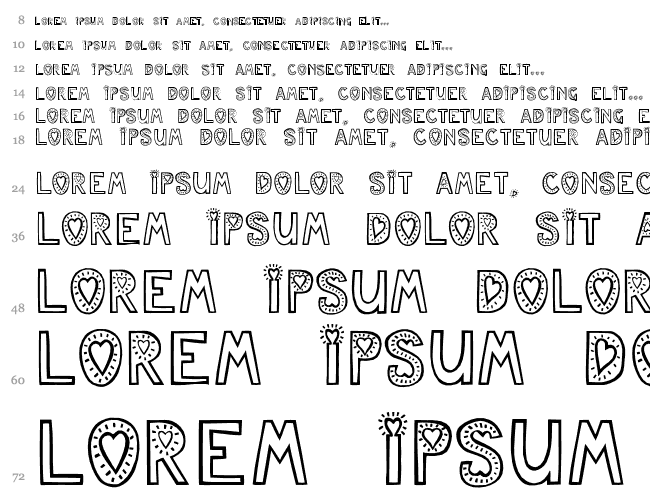 8 LOREM IPSUM DOLOR SIT AMET, CONSECTETUER ADIPISCING ELIT...
10 LOREM IPSUM DOLOR SIT AMET, CONSECTETUER ADIPISCING ELIT...
12 LOREM IPSUM DOLOR SIT AMET, CONSECTETUER ADIPISCING ELIT...
14 LOREM IPSUM DOLOR SIT AMET, CONSECTETUER ADIPISCING ELIT...
16 LOREM IPSUM DOLOR SIT AMET, CONSECTETUER ADIPISCING E
18 LOREM IPSUM DOLOR SIT AMET, CONSECTETUER ADIPI
24 LOREM IPSUM DOLOR SIT AMET, CONSEC
36 LOREM IPSUM DOLOR SIT A
48 LOREM IPSUM DOLOR
60 LOREM IPSUM DO
72 LOREM IPSUM